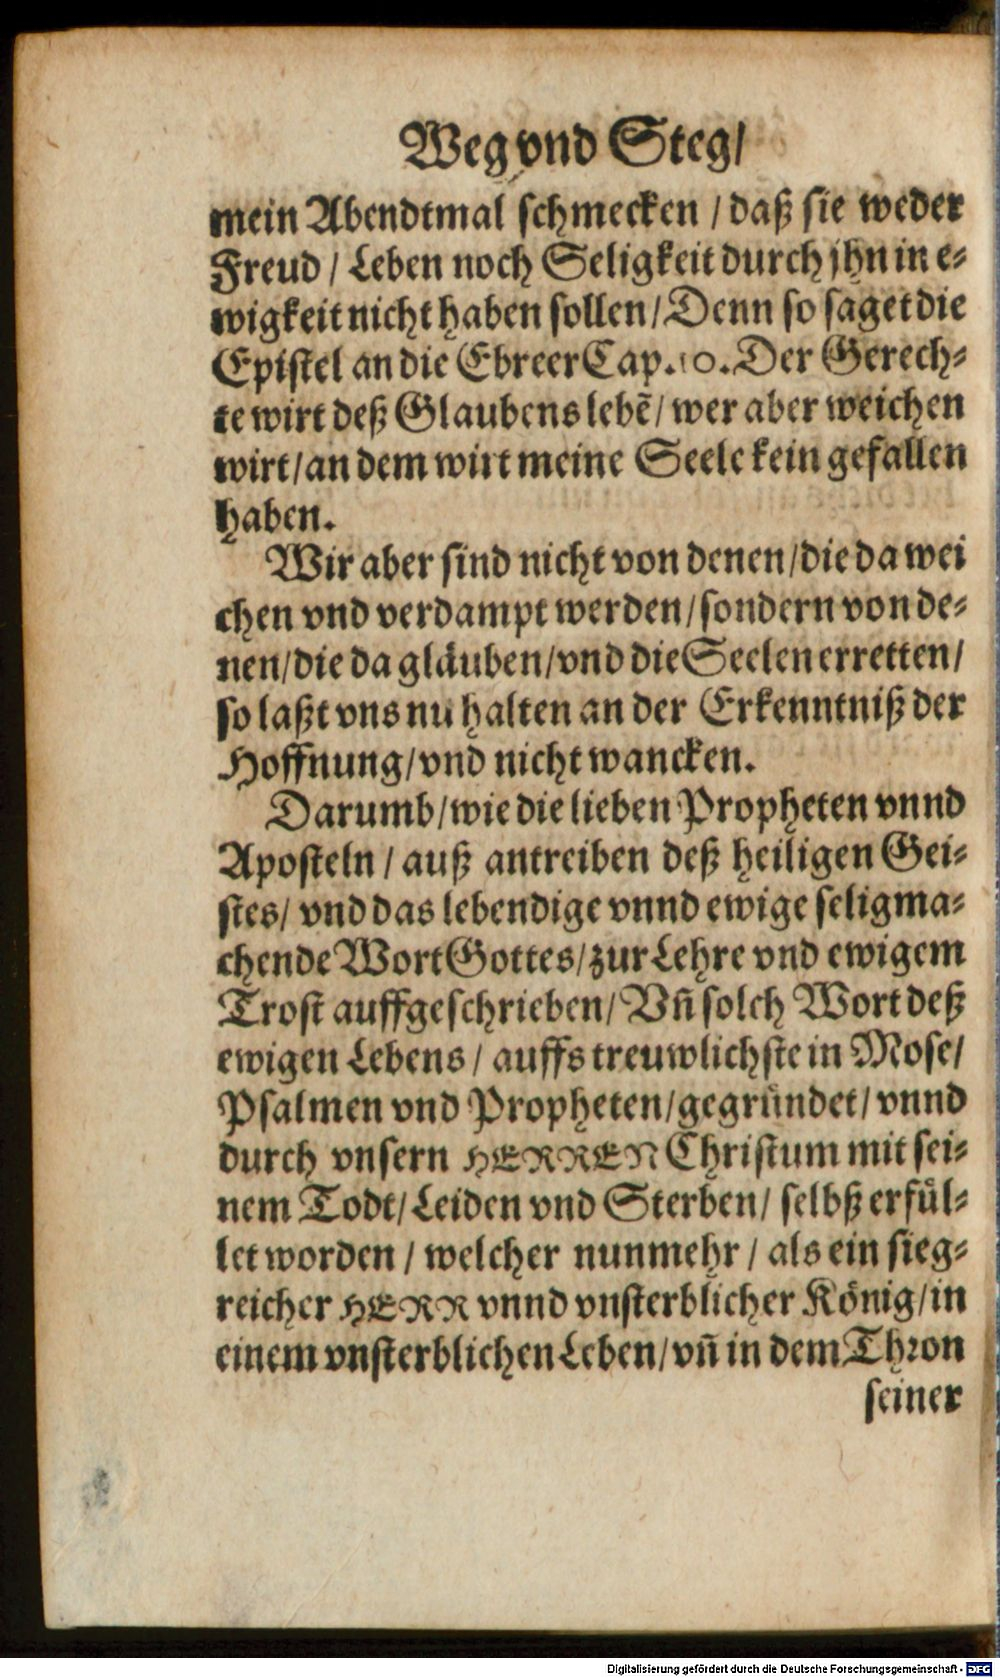 Weg vnd Steg/
mein Abendtmal schmecken / daß sie weder
Freud / Leben noch Seligkeit durch jhn in e-
wigkeit nicht haben sollen/ Denn so saget die
Epistel an die Ebreer Cap. 10. Der Gerech-
te wirt deß Glaubens lebẽ/ wer aber weichen
wirt/ an dem wirt meine Seele kein gefallen
haben.
Wir aber sind nicht von denen/ die da wei
chen vnd verdampt werden/ sondern von de-
nen/ die da gläuben/ vnd die Seelen erretten/
so laßt vns nu halten an der Erkenntniß der
Hoffnung/ vnd nicht wancken.
Darumb/ wie die lieben Propheten vnnd
Aposteln / auß antreiben deß heiligen Gei-
stes/ vnd das lebendige vnnd ewige seligma-
chende Wort Gottes/ zur Lehre vnd ewigem
Trost auffgeschrieben/ Vñ solch Wort deß
ewigen Lebens / auffs treuwlichste in Mose/
Psalmen vnd Propheten/ gegründet/ vnnd
durch vnsern HERREN Christum mit sei-
nem Todt/ Leiden vnd Sterben/ selbß erfül-
let worden / welcher nunmehr / als ein sieg-
reicher HERR vnnd vnsterblicher König/ in
einem vnsterblichen Leben/ vñ in dem Thron
seiner
Digitalisierung gefördert durch die Deutsche Forschungsgemeinschaft - DFG